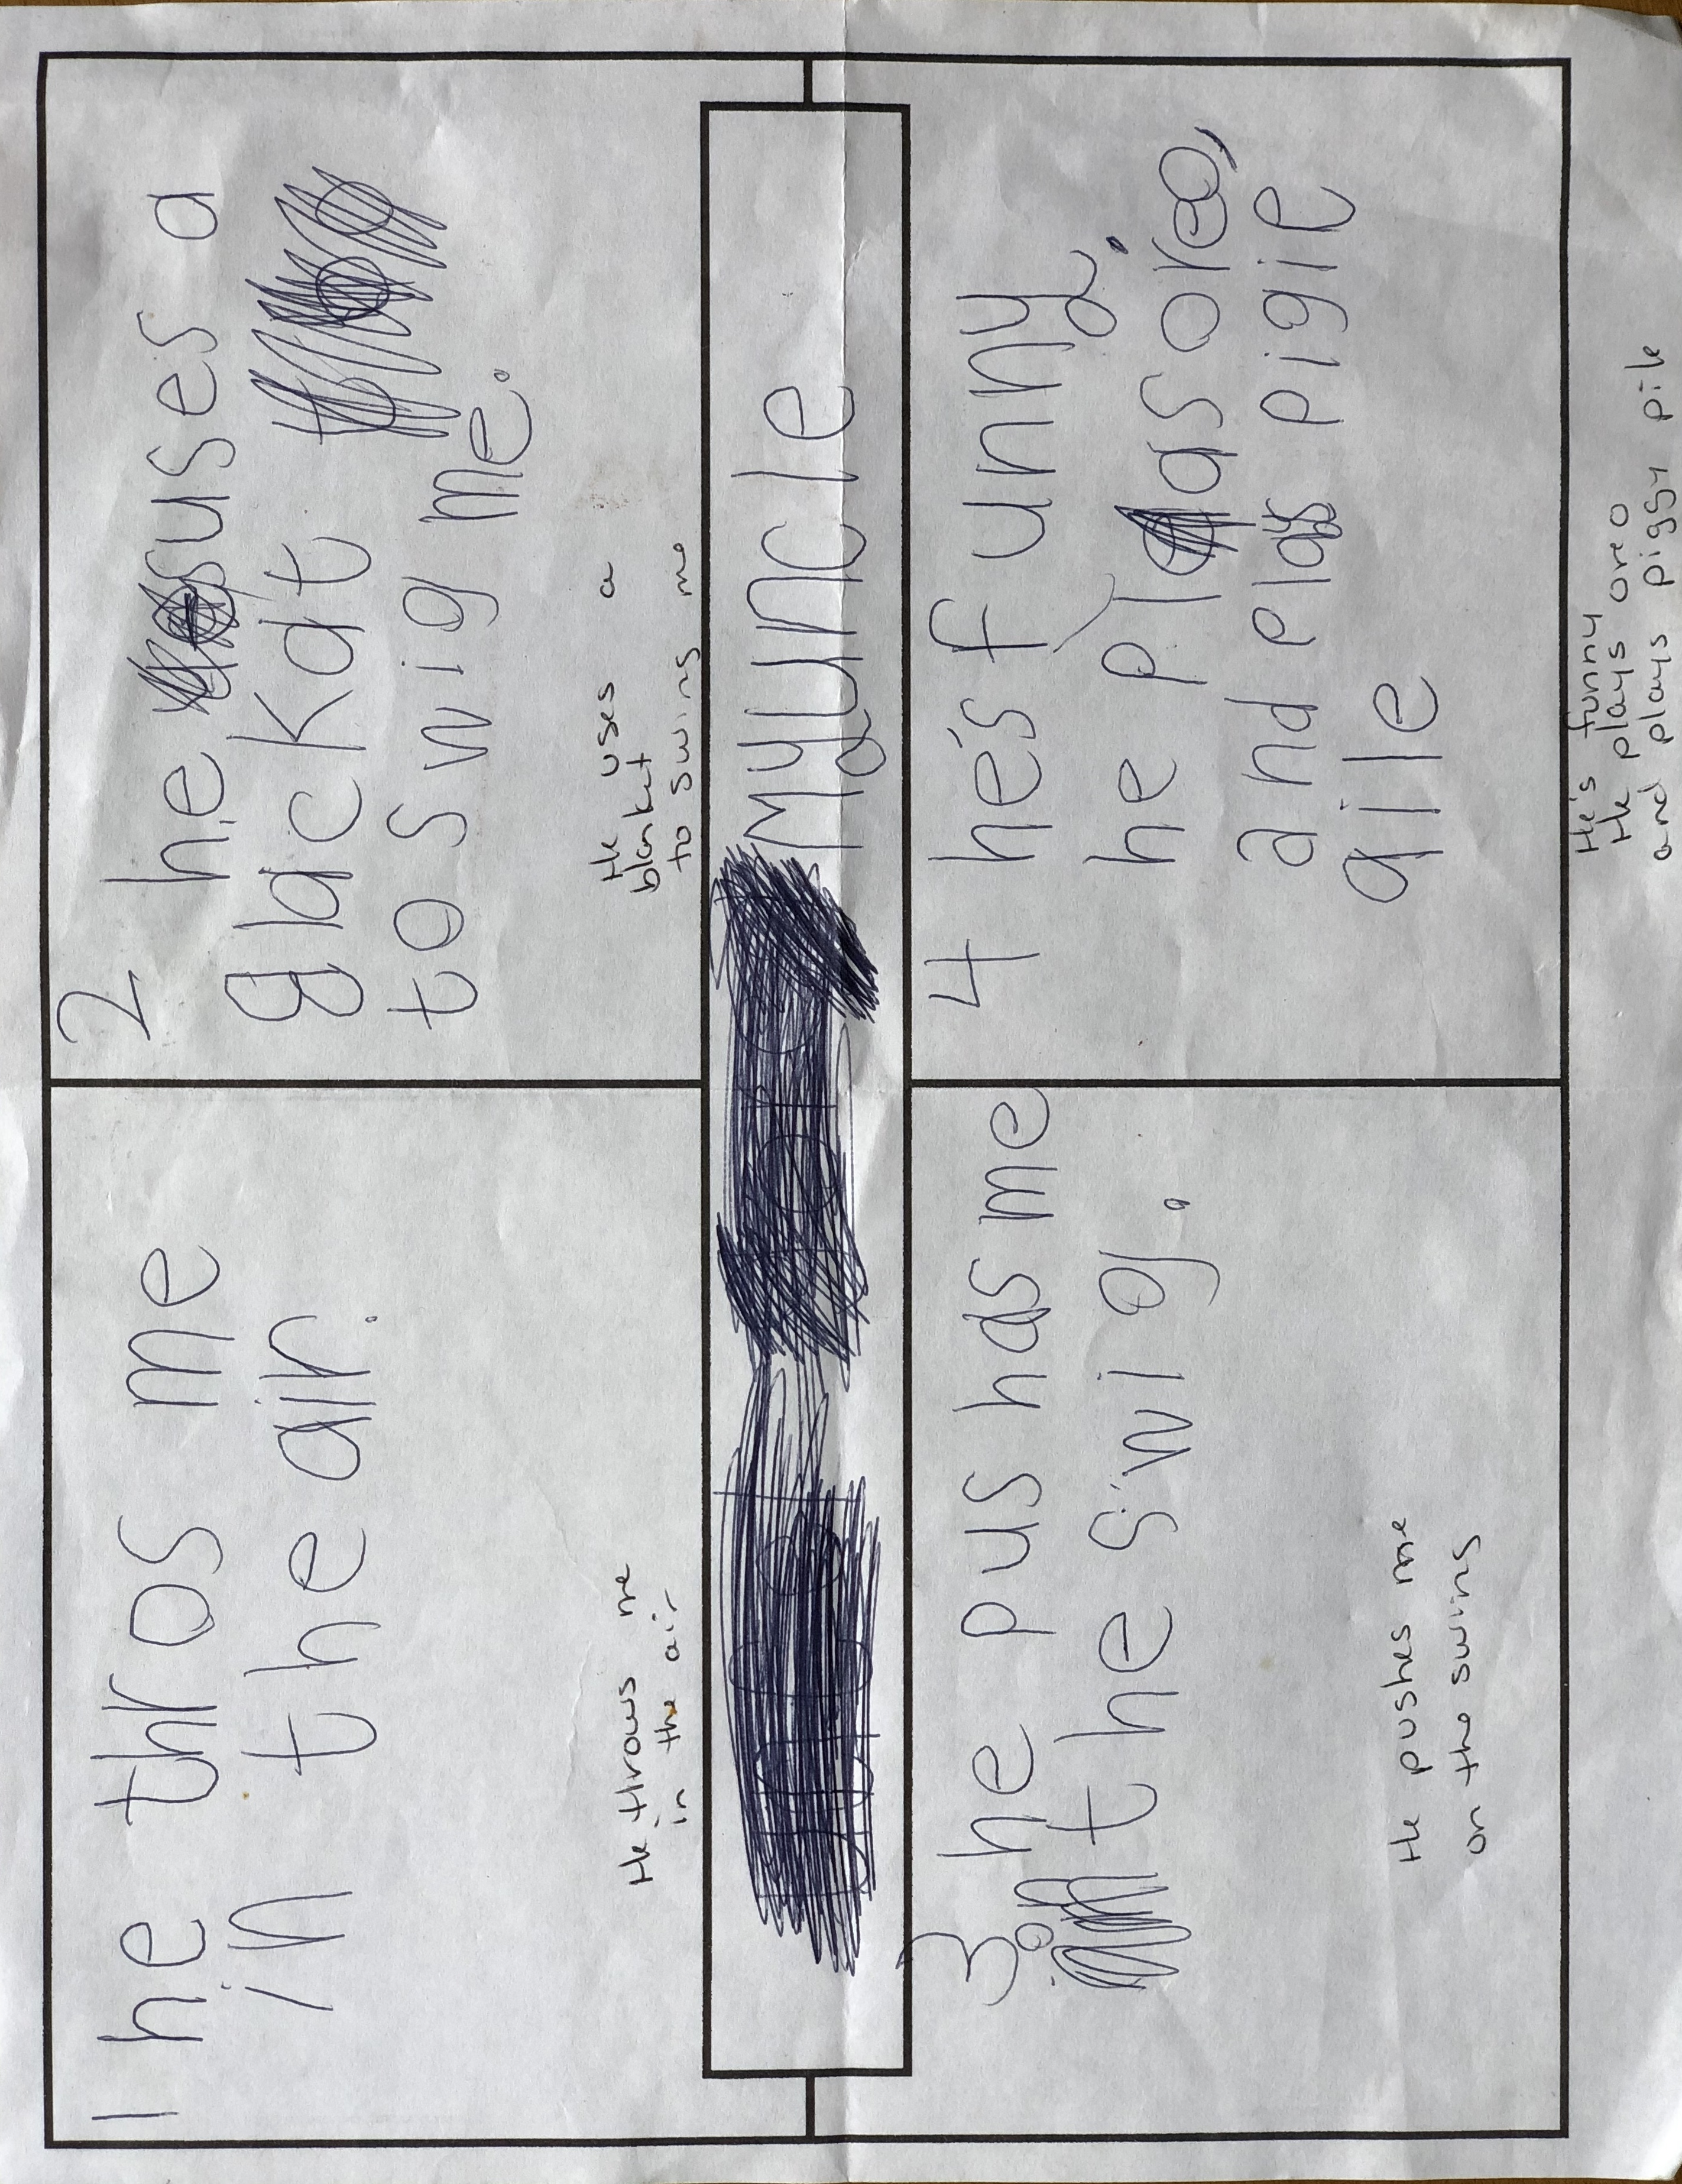 1 he thros me
in the air.
He throws me
in the air
2 he uses a
blackat
to swig me.
He uses a
blanket
to swing me
My uncle
3 he pushas me
on the swig.
He pushes me
on the swing
4 he's funny.
he plas oreo,
and plays pigie
pile
He's funny
He plays oreo
and plays piggy pile